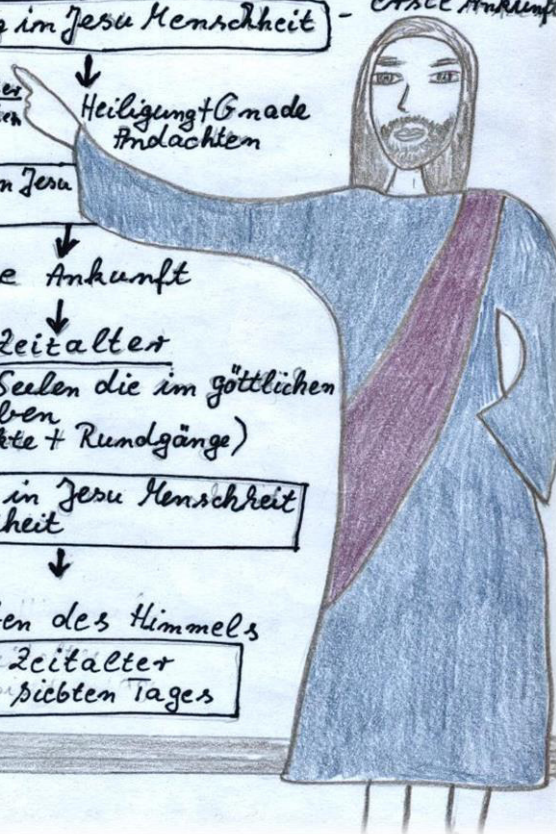 g im Jesu Menschheit - erste Ankunft
er
en
Heiligung + Gnade
Andachten
n Jesu
e Ankunft
Zeitalter
Seelen die im göttlichen
ben
kte + Rundgänge)
in Jesu Menschheit
heit
en des Himmels
Zeitalter
Siebten Tages